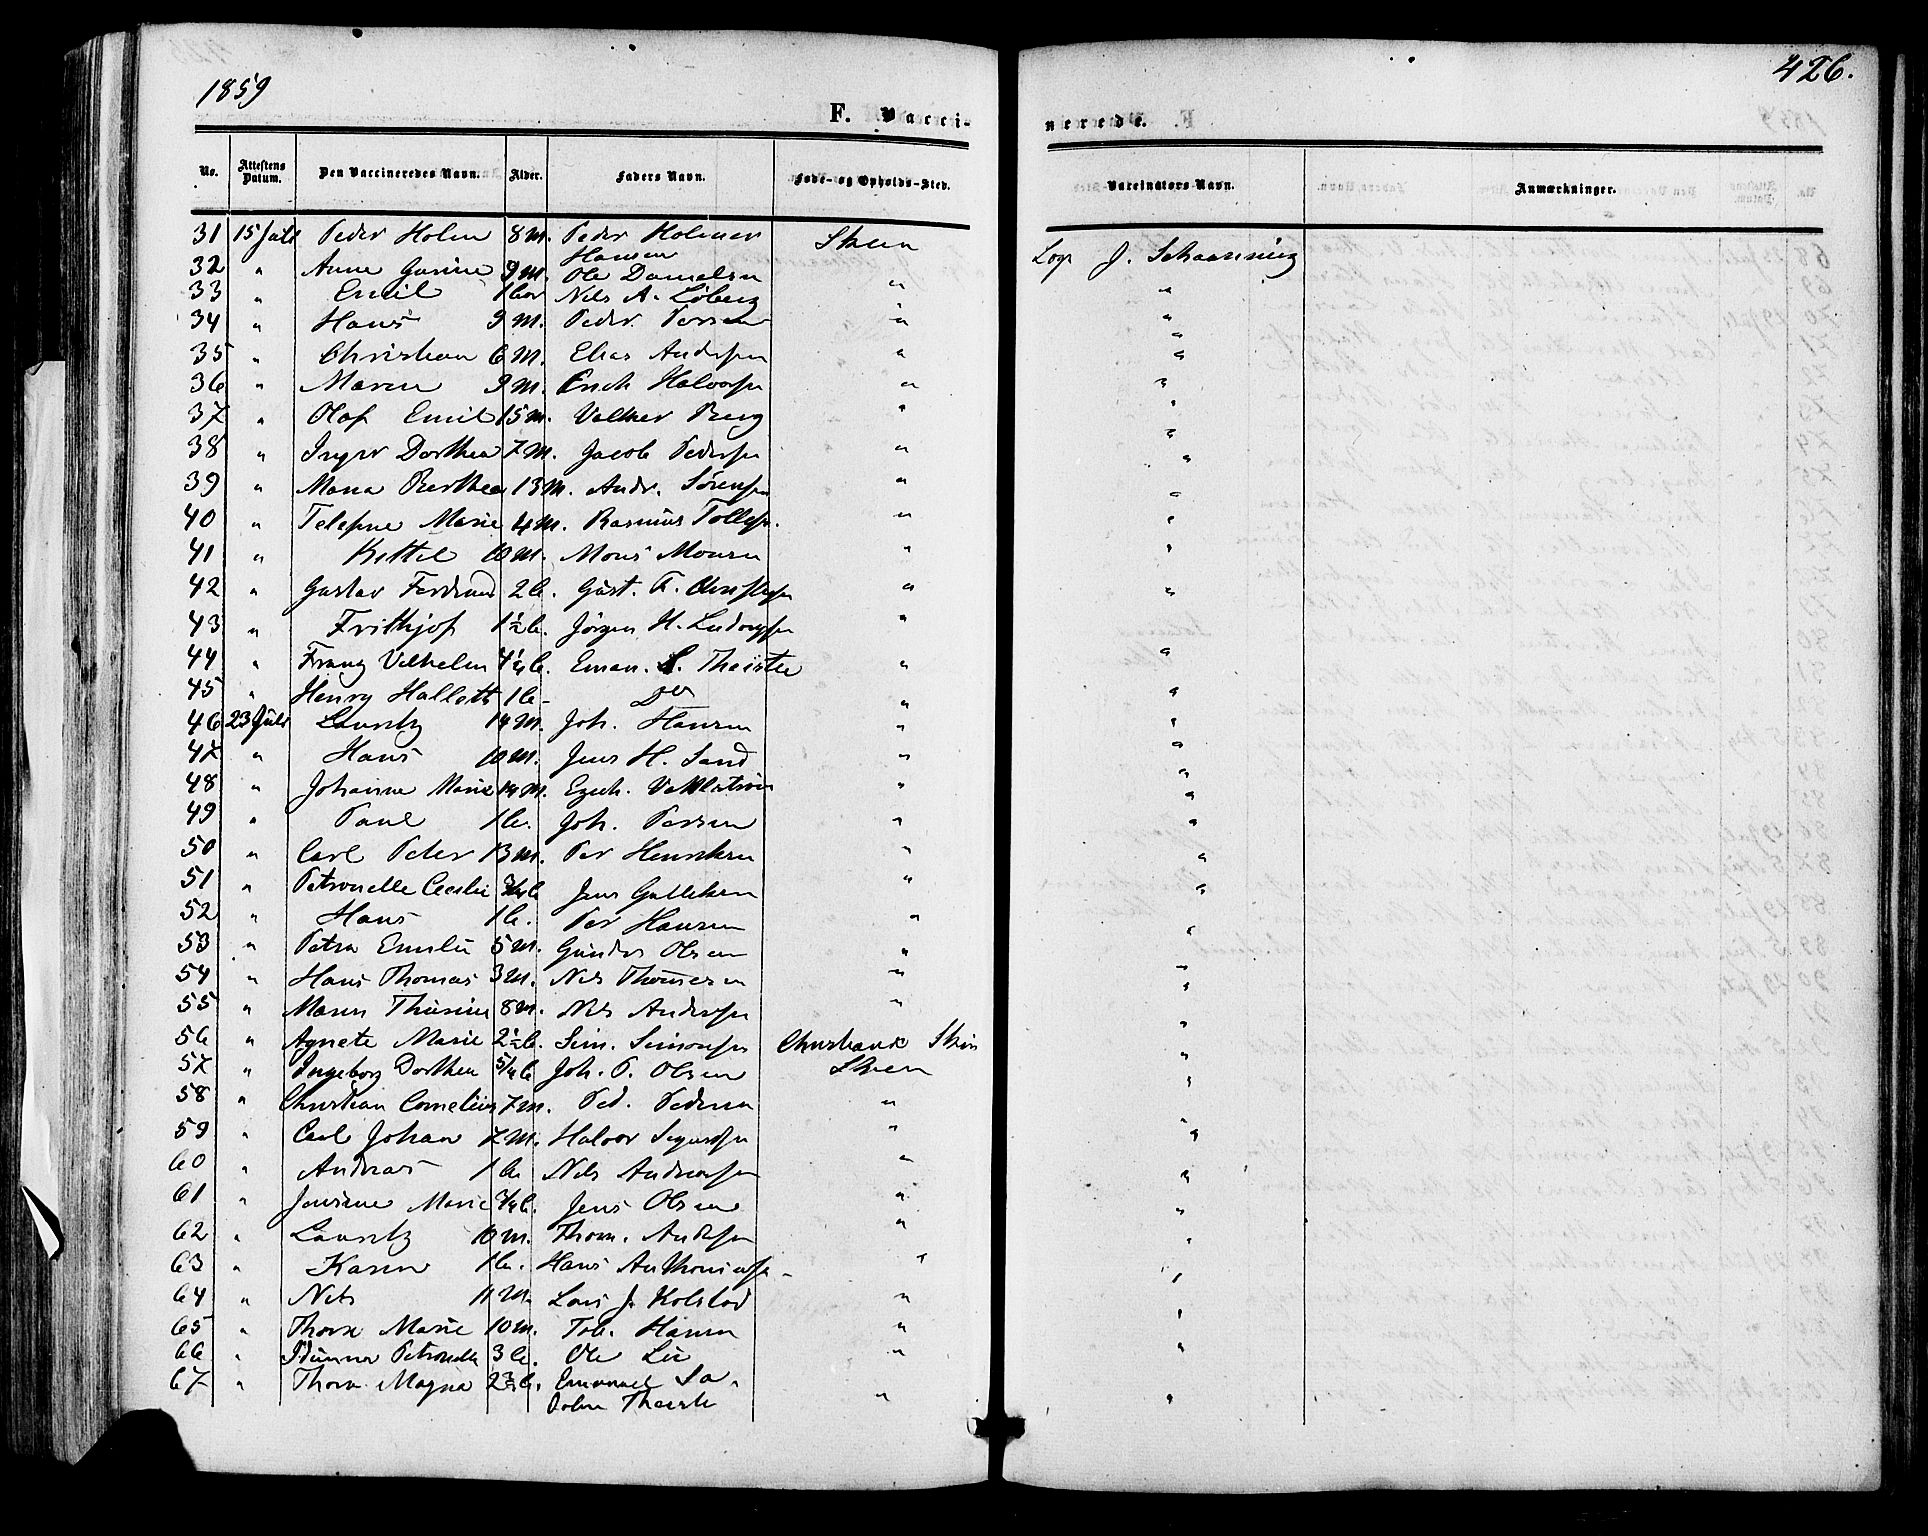 1859
426.
F. Vacci-
nerede.
No. Attestens Datum. Den Vaccineredes Navn. Alder. Faders Navn. Føde- og Opholds-Sted. Vaccinators Navn. Anmærkninger.
31 15 Juli Peder Holm 8 M. Peder Holmer Hansen Skien Løgr J. Schaanning
32 " Anne Gurine 9 M. Ole Danielsen " "
33 " Emil 1 Aar Nils A. Løberg " "
34 " Hans 9 M. Peder Persen " "
35 " Christian 6 M. Elias Andersen " "
36 " Maren 9 M. Erich Halvorsen " "
37 " Olaf Emil 15 M. Volkker Berg " "
38 " Inger Dorthea 7 M. Jacob Pedersen " "
39 " Maria Berthea 13 M. Andr. Sörensen " "
40 " Telefine Marie 4 M. Rasmus Tollefs. " "
41 " Kittel 10 M. Mons Monsen " "
42 " Gustav Ferdinand 2 A. Gust. F. Christensen " "
43 " Frithjof 1½ A. Jörgen H. Ludvigsen "
44 " Franz Vilhelm 4¼ A. Eman. S. Theiste " "
45 " Henry Hallett 1 A. Do " "
46 23 Juli Lauritz 14 M. Joh. Hansen " "
47 " Hans 10 M. Jens H. Sand " "
48 " Johanne Marie 14 M. Ezech. Vahlström " "
49 " Paul 1 A. Joh. Persen " "
50 " Carl Peter 13 M. Per Henriksen " "
51 " Petronelle Cecilie ¾ A. Jens Gulliksen " "
52 " Hans 1 A. Per Hansen " "
53 " Petra Emilie 5 M. Gunder Olsen " "
54 " Hans Thomas 3 M. Nils Thomesen " "
55 " Maren Thrine 8 M. Nils Andersen " "
56 " Agnete Marie 2½ A. Sim. Simonsen Skien "
57 " Ingeborg Dorthea 5/4 A. Joh. P. Olsen Skien "
58 " Christian Cornelius 7 M. Ped. Pedersen " "
59 " Carl Johan 7 M. Halvor Sigurdsen " "
60 " Andreas 1 A. Nils Andersen " "
61 " Jensine Marie ¾ A. Jens Olsen " "
62 " Lauritz 10 M. Thom. Andersen " "
63 " Karen 1 A. Hans Anthonisen " "
64 " Nils 11 M. Lars J. Kolstad " "
65 " Thora Marie 10 M. Tob. Hansen " "
66 " Petronelle 3 A. Ole Lie " "
67 " Thora Magna 2¾ A. Emanuel Theiste " "